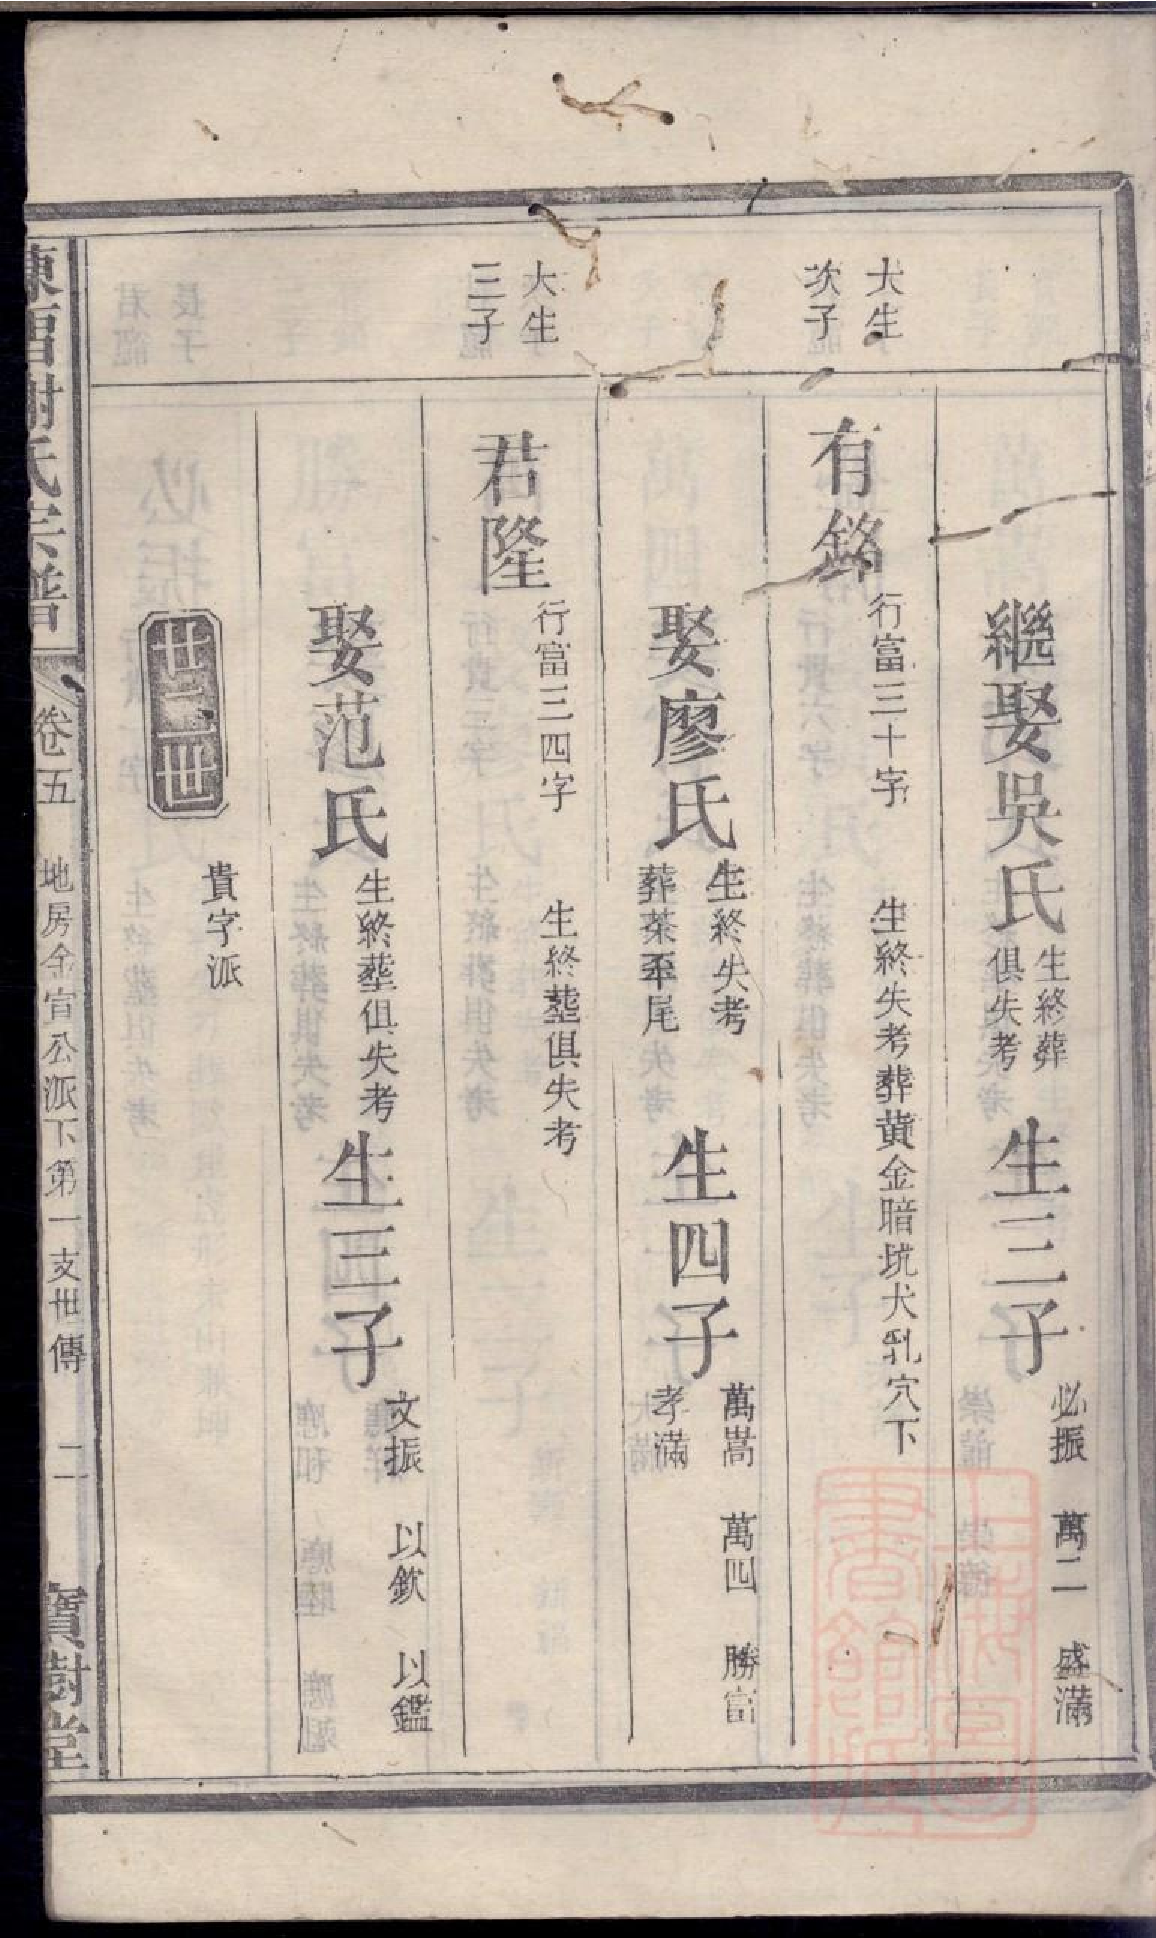 繼娶吳氏 生終葬俱失考 生三子 必振 萬二 盛滿
大生次子
有銘 行富三十字 生終失考葬黄金暗坑犬乳穴下
娶廖氏 生終失考葬茶坪尾 生四子 萬嵩 萬四 勝富 孝滿
大生三子
君隆 行富三四字 生終塟俱失考
娶范氏 生終塟俱失考 生三子 文振 以欽 以鑑
廿二世
貴字派
謝氏宗譜 卷五 地房念宣公派下第一支世傳 二 寶樹堂
上海圖書館藏